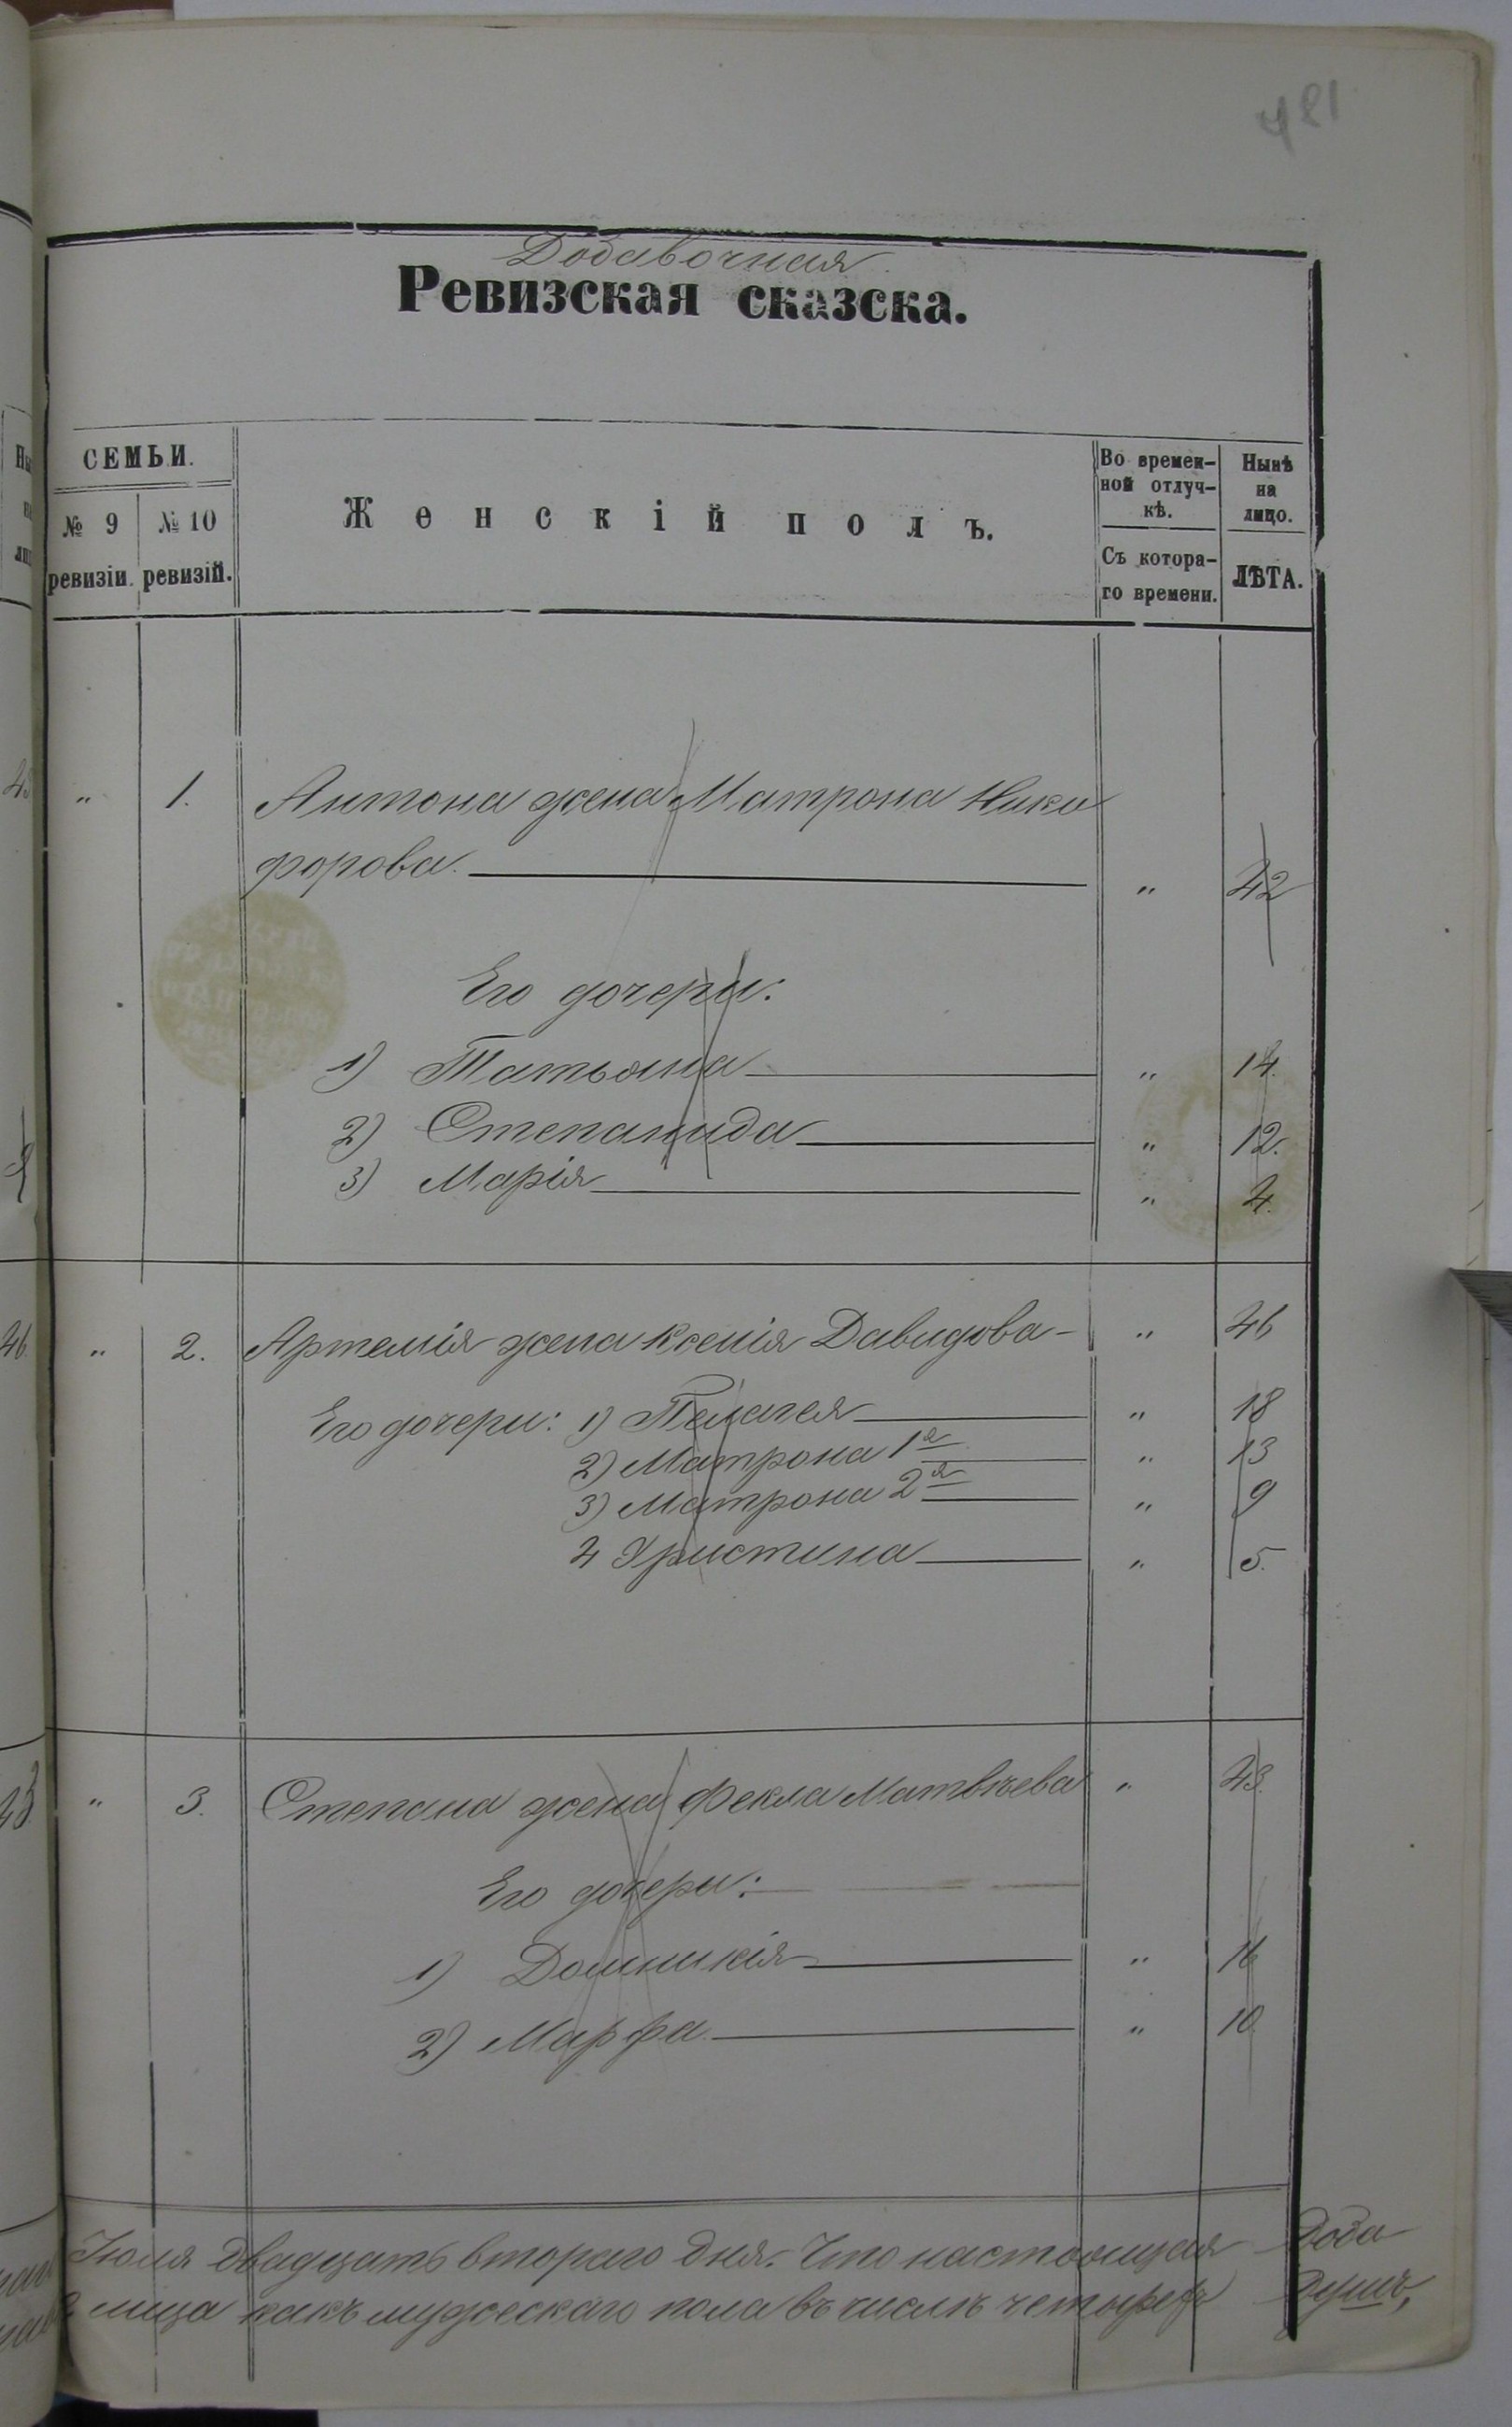 481
Добавочная
Ревизская сказска.
СЕМЬИ.
№ 9 ревизіи.
№ 10 ревизій.
Женскій полъ.
Во времен-
ной отлуч-
кѣ.
Съ котора-
го времени.
Нынѣ
на
лицо.
ЛѢТА.
" 1. Антона жена Матрона Ники
форова. " 42
Его дочери:
1) Татьяна " 14.
2) Степанида " 12.
3) Марія " 4.
" 2. Артемія жена Ксенія Давидова - " 46
Его дочери: 1) Пелагея " 18
2) Матрона 1я " 13
3) Матрона 2я " 9
4 Христина " 5.
" 3. Степана жена Фекла Матвѣева " 43.
Его дочери:
1) Домникія " 16
2) Марфа " 10
Іюля двадцать втораго дня. Что настоящая Доба
лица какъ мужескаго пола въ числѣ четырехъ душъ,